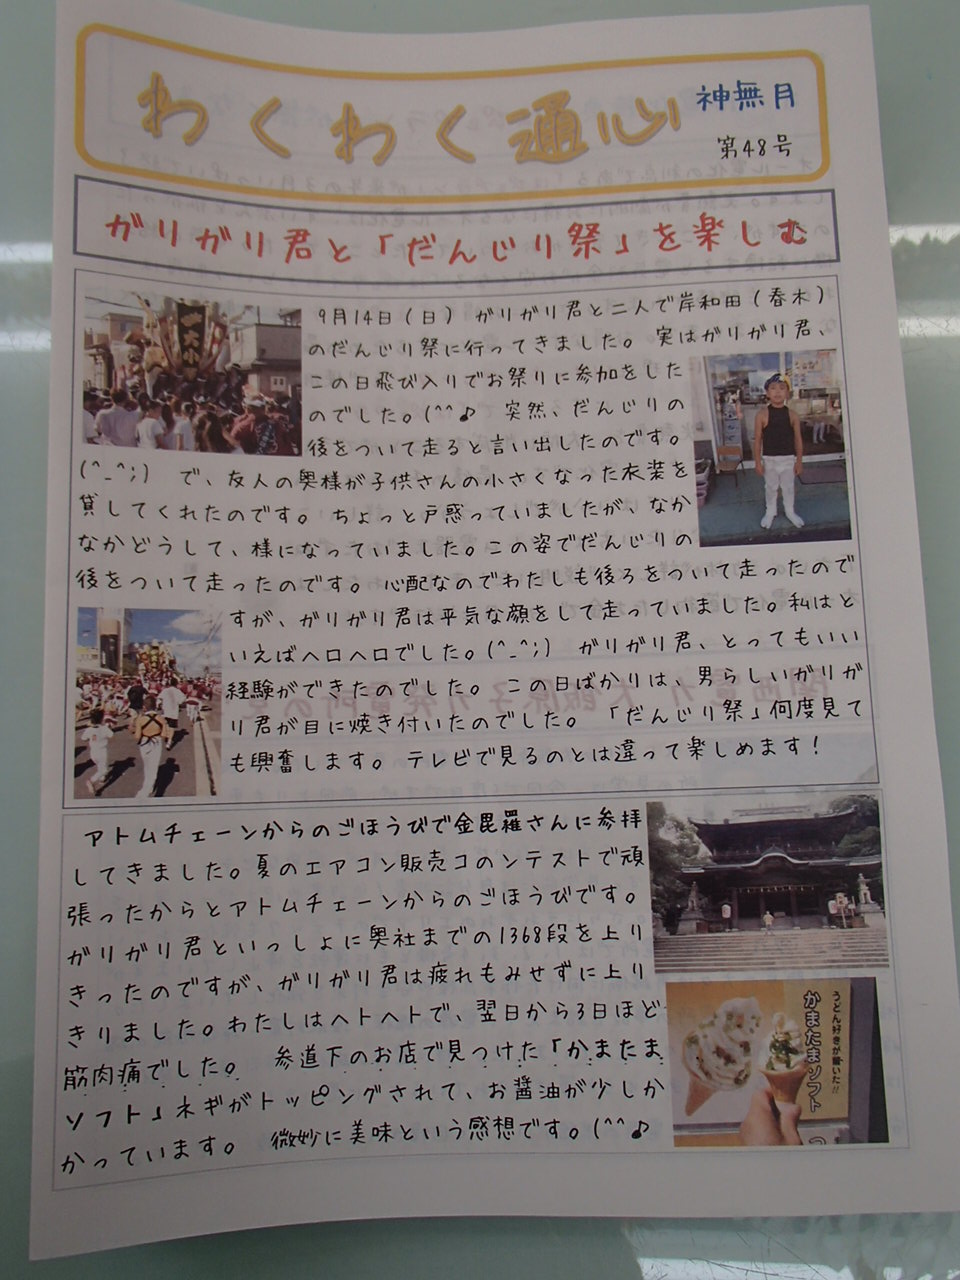 わくわく通心
神無月
第48号
ガリガリ君と「だんじり祭」を楽しむ
9月14日(日) ガリガリ君と二人で岸和田(春木)
のだんじり祭に行ってきました。 実はガリガリ君、
この日飛び入りでお祭りに参加をした
のでした。(^^♪ 突然、だんじりの
後をついて走ると言い出したのです。
(^_^;) で、友人の奥様が子供さんの小さくなった衣装を
貸してくれたのです。 ちょっと戸惑っていましたが、なか
なかどうして、様になっていました。この姿でだんじりの
後をついて走ったのです。 心配なのでわたしも後ろをついて走ったので
すが、ガリガリ君は平気な顔をして走っていました。私はと
いえばヘロヘロでした。(^_^;) ガリガリ君、とってもいい
経験ができたのでした。 この日ばかりは、男らしいガリガ
リ君が目に焼き付いたのでした。 「だんじり祭」何度見て
も興奮します。 テレビで見るのとは違って楽しめます!
アトムチェーンからのごほうびで金毘羅さんに参拝
してきました。夏のエアコン販売コのンテストで頑
張ったからとアトムチェーンからのごほうびです。
ガリガリ君といっしょに奥社までの1368段を上り
きったのですが、ガリガリ君は疲れもみせずに上り
きりました。わたしはヘトヘトで、翌日から3日ほど
筋肉痛でした。 参道下のお店で見つけた「かまたま
ソフト」ネギがトッピングされて、お醤油が少しか
かっています。 微妙に美味という感想です。(^^♪
大小
うどん好きが届いた!!
かまたまソフト